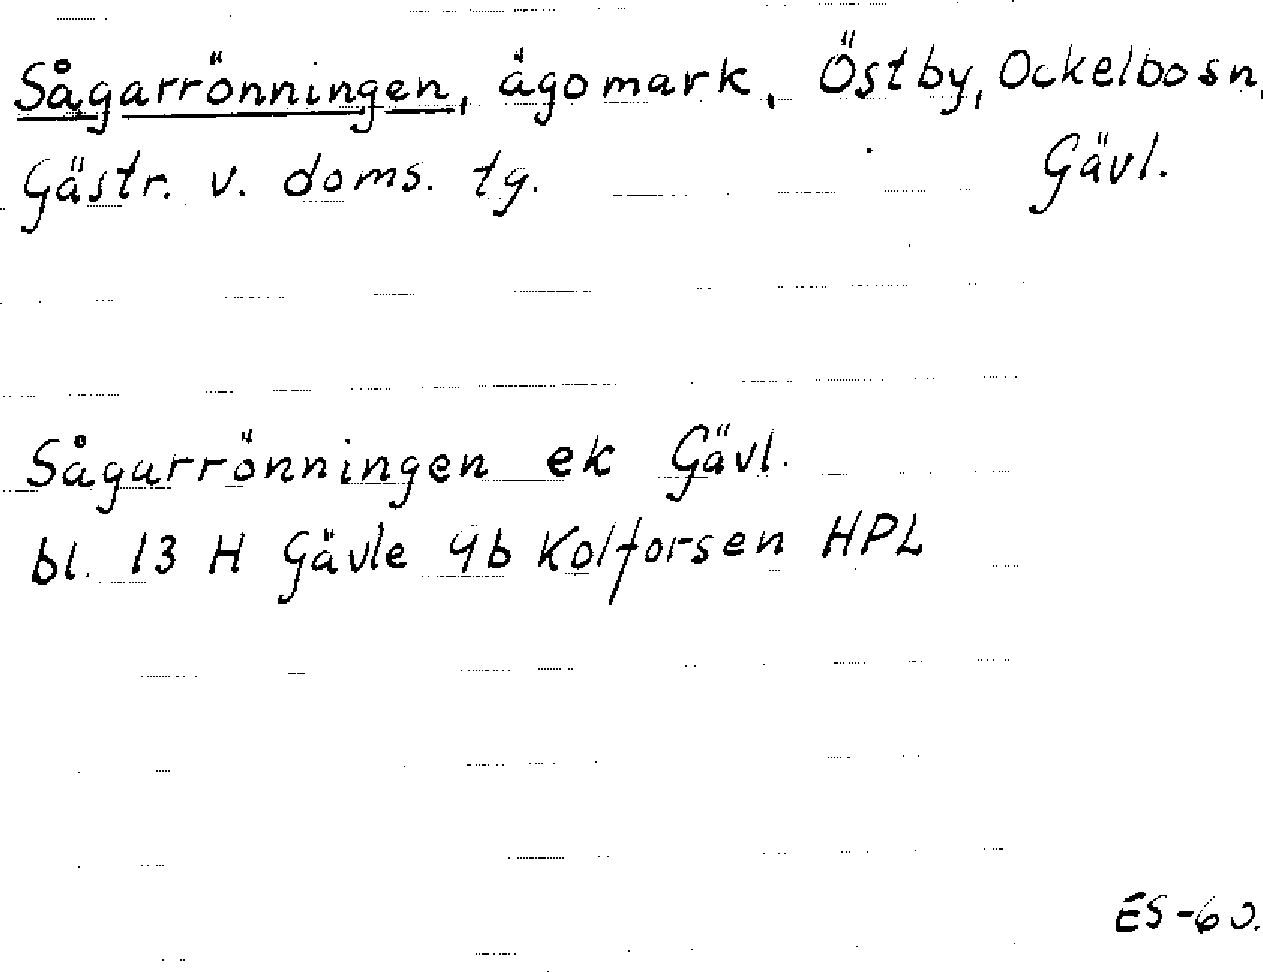 Sågarrönningen, ägomark, Östby, Ockelbosn,
Gästr. v. doms. tg. Gävl.
Sågarrönningen ek Gävl.
bl. 13 H Gävle 9b Kolforsen HPL
ES-60.